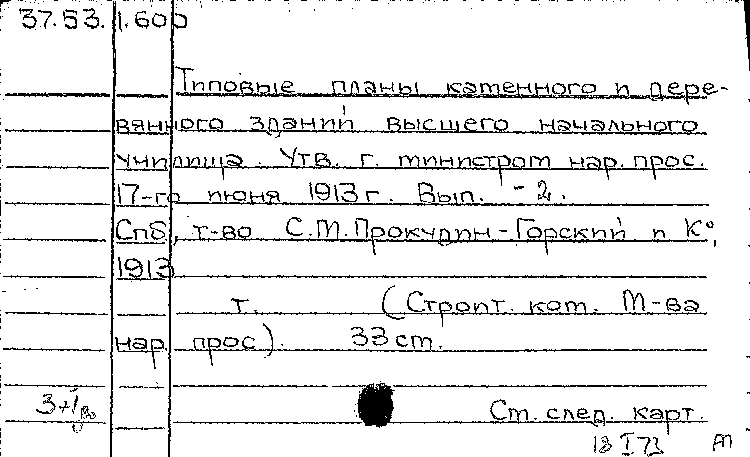 37.53.1.600
Типовые планы каменного и дере-
вянного зданий высшего начального
училища. Утв. г. министром нар. прос.
17-го июня 1913 г. Вып. - 2.
Спб, т-во С.М. Прокудин-Горский и К°,
1913
т. (Строит. ком. М-ва
нар. прос). 33 см.
3+1
Ст. след. карт.
18 I 73